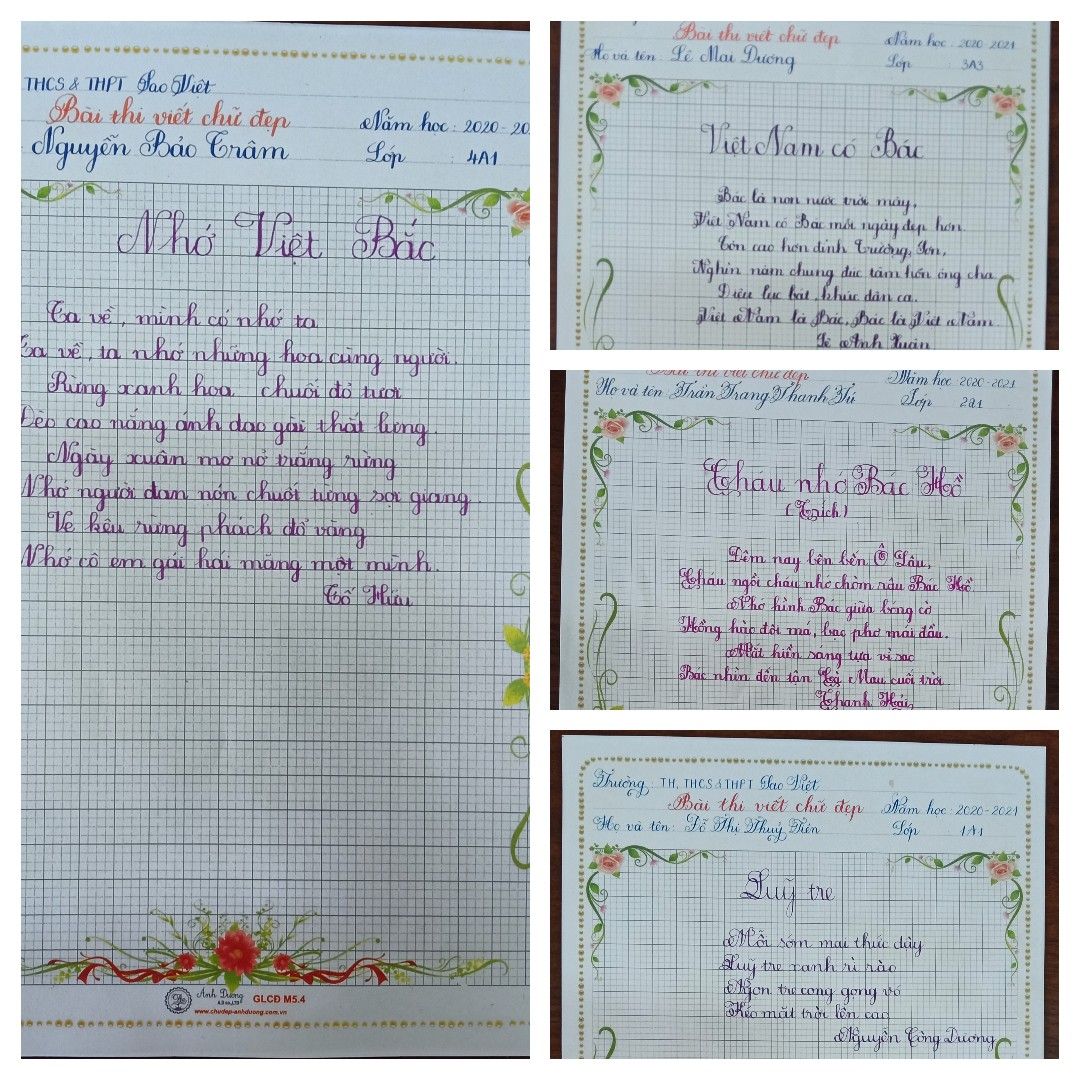 THCS & THPT Sao Việt
Bài thi viết chữ đẹp
Năm học : 2020 - 20
Nguyễn Bảo Trâm
Lớp : 4A1
Nhớ Việt Bắc
Ta về, mình có nhớ ta
Ta về, ta nhớ những hoa cùng người.
Rừng xanh hoa chuối đỏ tươi
Đèo cao nắng ánh dao gài thắt lưng.
Ngày xuân mơ nở trắng rừng
Nhớ người đan nón chuốt từng sợi giang.
Ve kêu rừng phách đổ vàng
Nhớ cô em gái hái măng một mình.
Tố Hữu
Ánh Dương
GLCĐ M5.4
www.chudep-anhduong.com.vn
Bài thi viết chữ đẹp
Năm học : 2020 - 2021
Họ và tên : Lê Mai Dương
Lớp : 3A3
Việt Nam có Bác
Bác là non nước trời mây,
Việt Nam có Bác mỗi ngày đẹp hơn.
Còn cao hơn đỉnh Trường Sơn,
Nghìn năm chung đúc tâm hồn ông cha.
Điệu lục bát, khúc dân ca.
Việt Nam là Bác, Bác là Việt Nam.
Lê Anh Xuân
Bài thi viết chữ đẹp
Năm học : 2020 - 2021
Họ và tên : Trần Trang Thanh Tú
Lớp : 2A1
Cháu nhớ Bác Hồ
(Trích)
Đêm nay bên bến Ô Lâu,
Cháu ngồi cháu nhớ chòm râu Bác Hồ.
Nhớ hình Bác giữa bóng cờ
Hồng hào đôi má, bạc phơ mái đầu.
Mắt hiền sáng tựa vì sao
Bác nhìn đến tận Cà Mau cuối trời.
Thanh Hải
Trường : TH, THCS & THPT Sao Việt
Bài thi viết chữ đẹp
Năm học : 2020 - 2021
Họ và tên : Đỗ Thị Thuỷ Tiên
Lớp : 1A1
Luỹ tre
Mỗi sớm mai thức dậy
Luỹ tre xanh rì rào
Ngọn tre cong gọng vó
Kéo mặt trời lên cao
Nguyễn Công Dương